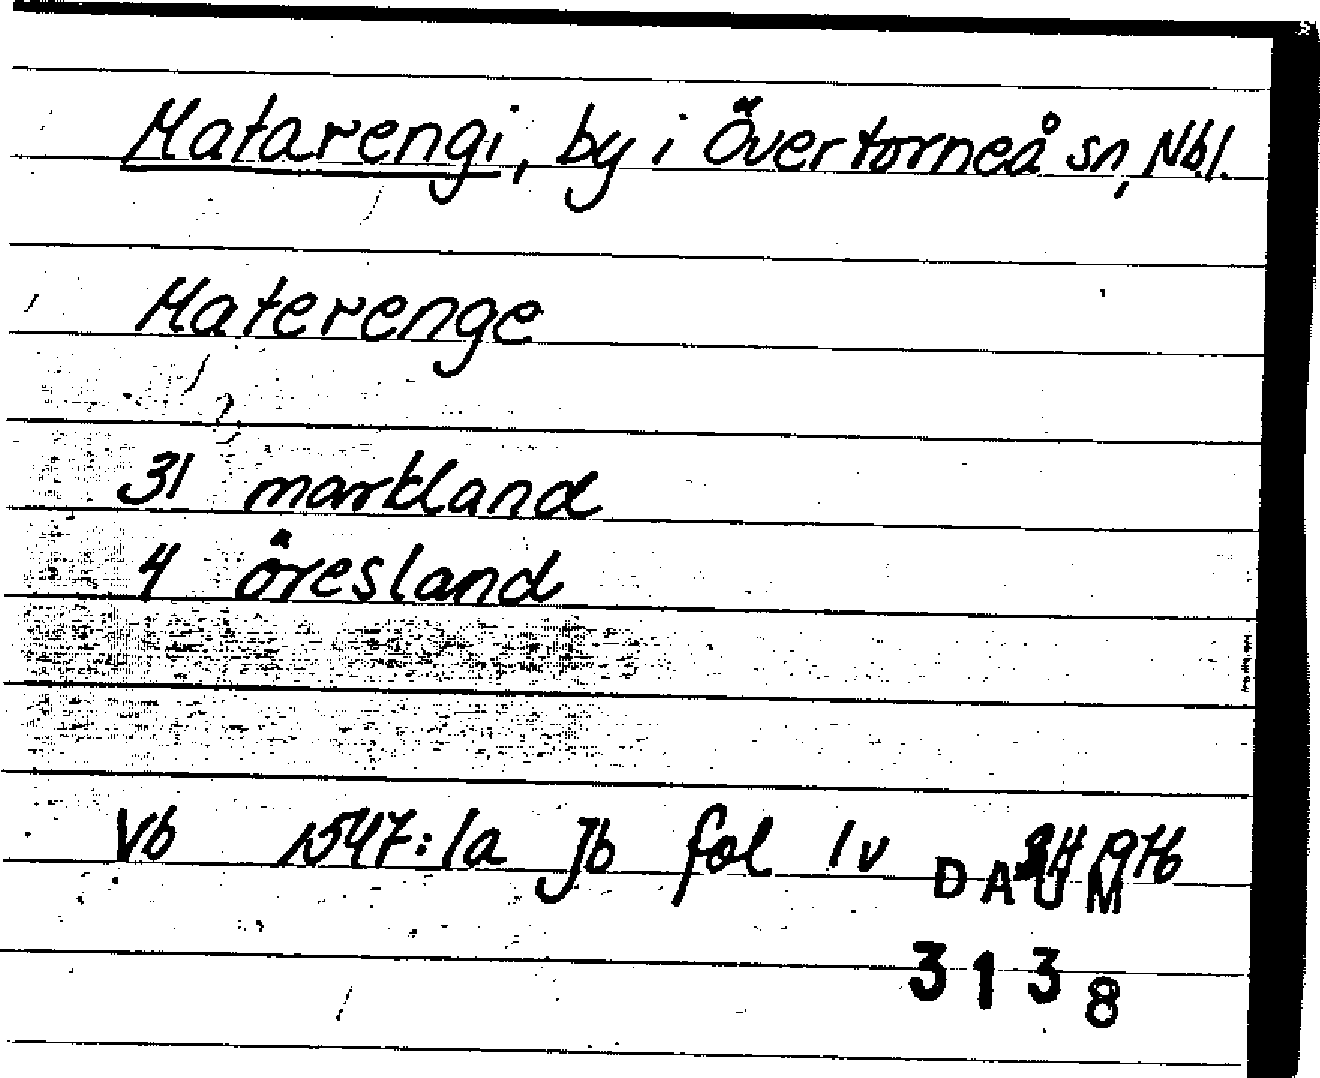 Matarengi, by i Övertorneå sn, Nbl.
Materenge
31 markland
4 öresland
Vb 1547:1a Jb fol 1v
DAUM
3138